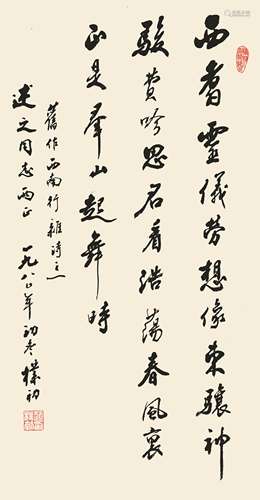 西翥靈儀勞想像東驤神
駿費吟思君看浩蕩春風裏
正是羣山起舞時
舊作西南行雜詩之一
之同志兩正 一九八〇年初冬 樸初